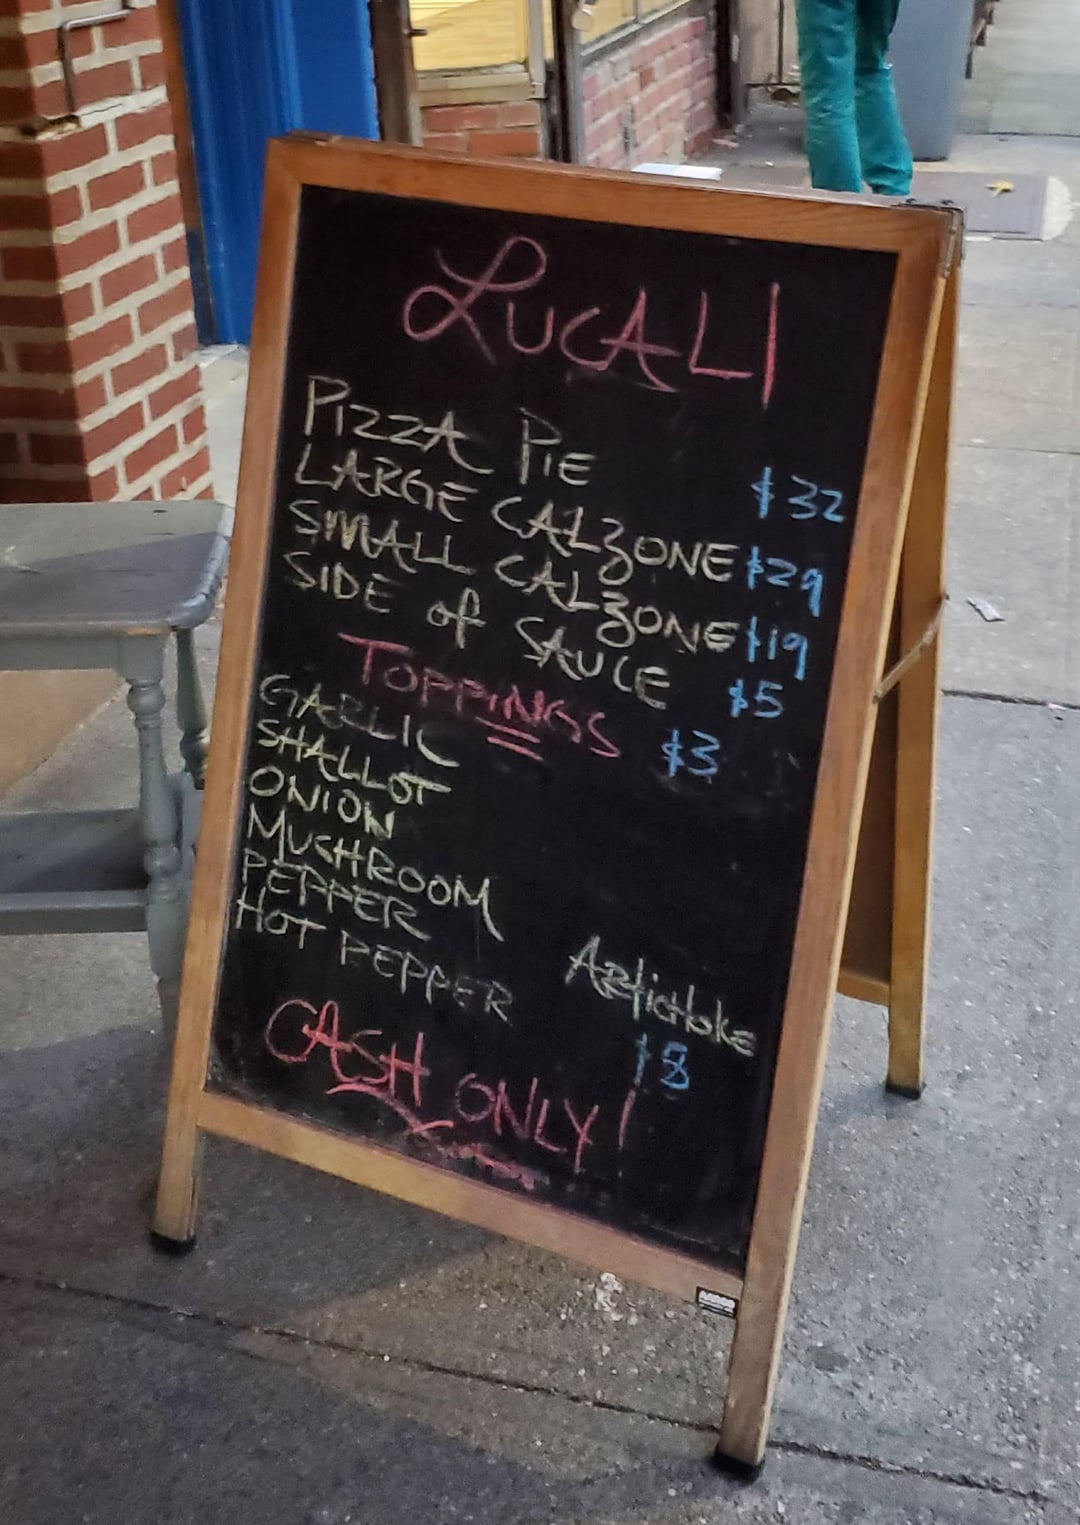 LUCALI
PIZZA PIE $32
LARGE CALZONE $29
SMALL CALZONE $19
SIDE of SAUCE $5
TOPPINGS $3
GARLIC
SHALLOT
ONION
MUSHROOM
PEPPER
HOT PEPPER
ARtichoke
$8
CASH ONLY!